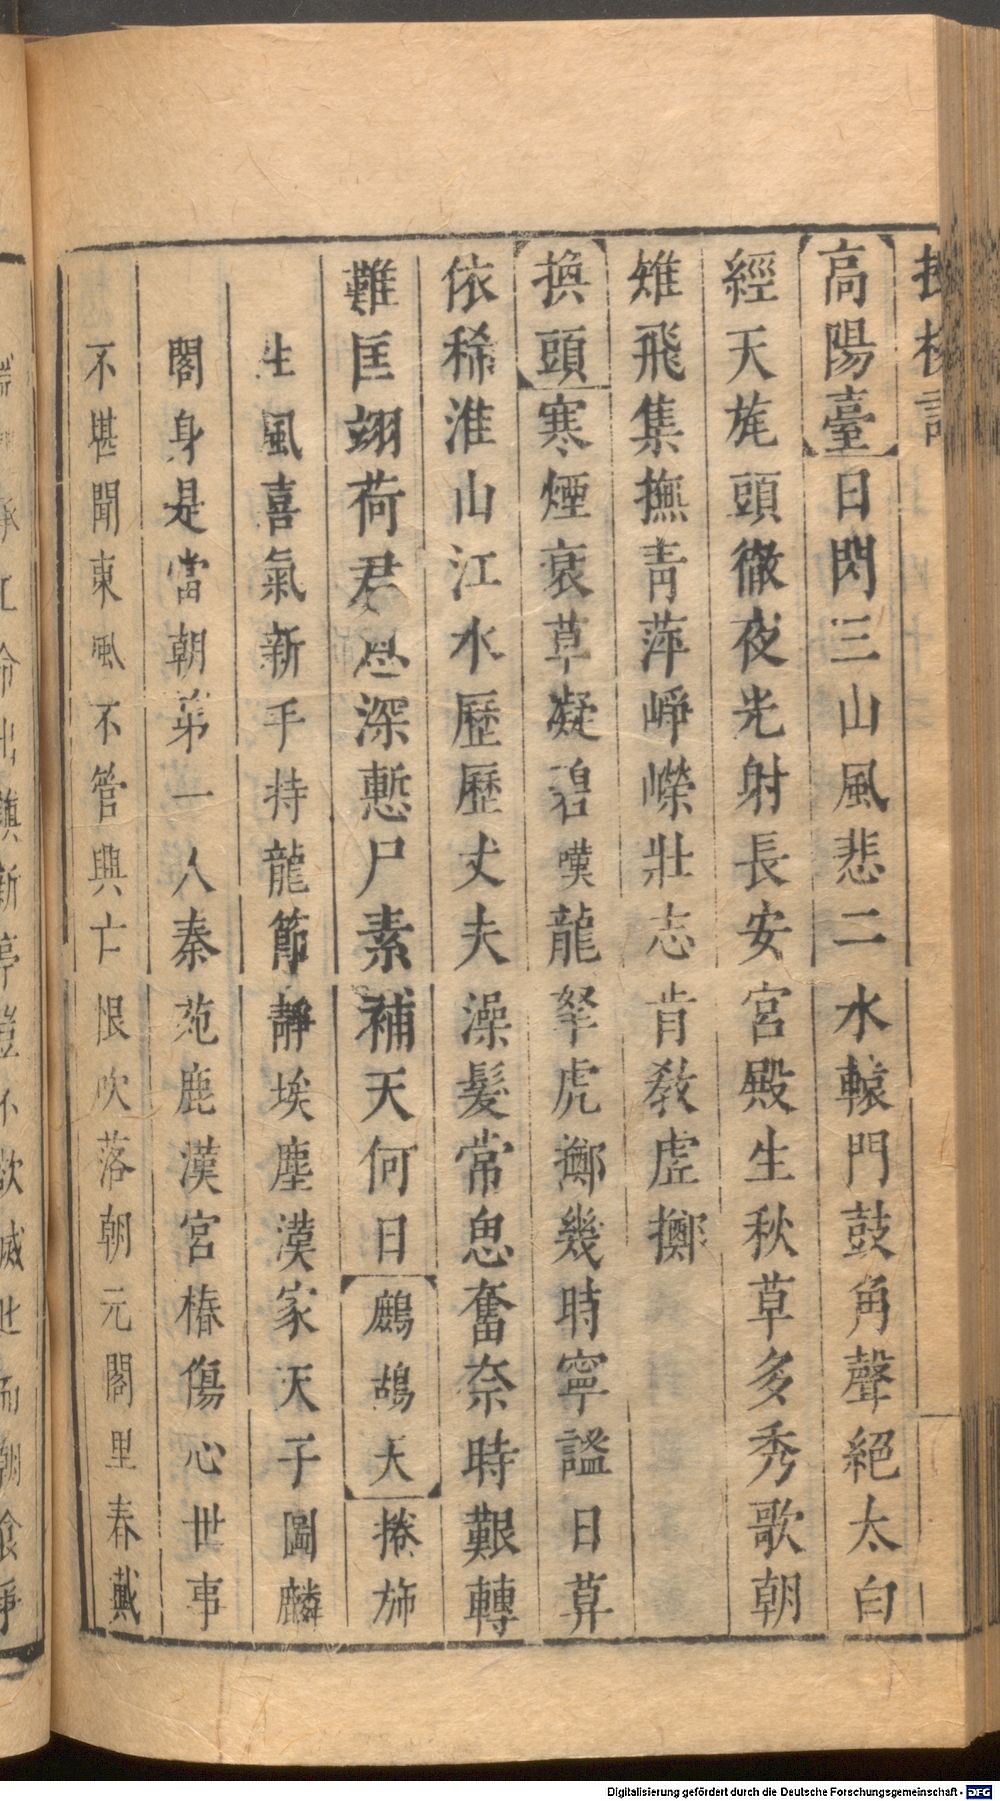 高陽臺日閃三山風悲二水轅門鼓角聲絕太白
經天旄頭徹夜光射長安宮殿生秋草多秀歌朝
雉飛集撫青萍崢嶸壯志肯教虛擲
換頭寒煙衰草凝碧嘆龍拏虎擲幾時寧謐日算
依稀淮山江水歷歷丈夫澡髮常思奮奈時艱轉
難匡翊荷君恩深慙尸素補天何日鷓鴣天捲斾
生風喜氣新手持龍節靜埃塵漢家天子圖麟
閣身是當朝第一人秦苑鹿漢宮椿傷心世事
不堪聞東風不管興亡恨吹落朝元閣里春戴
Digitalisierung gefördert durch die Deutsche Forschungsgemeinschaft - DFG